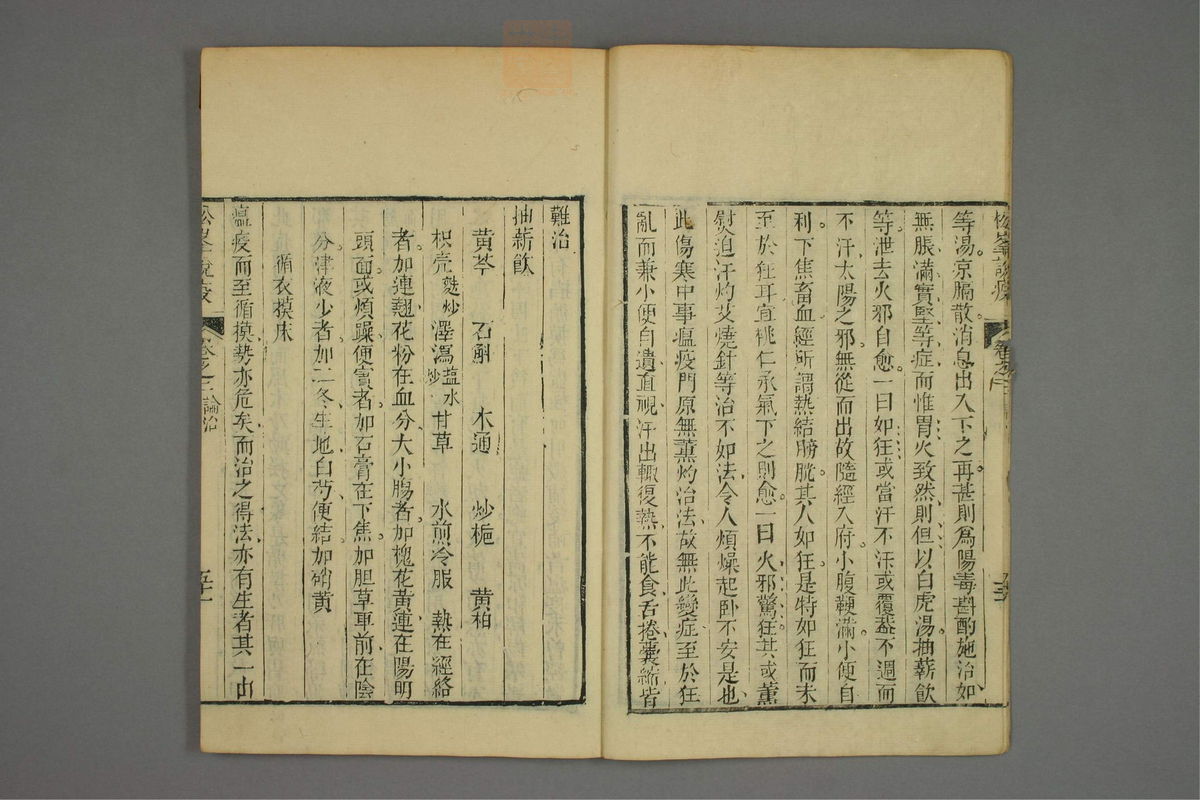 松峯說疫
卷之二
等湯京膈散消息出入下之再甚則爲陽毒斟酌施治如
無脹滿實堅等症而惟胃火致然則但以白虎湯抽薪飲
等泄去火邪自愈一曰如狂或當汗不汗或覆蓋不週而
不汗太陽之邪無從而出故隨經入府小腹鞕滿小便自
利下焦畜血經所謂熱結膀胱其人如狂是特如狂而未
至於狂耳宜桃仁承氣下之則愈一曰火邪驚狂其或薰
熨迫汗灼艾燒針等治不如法令人煩燥起卧不安是也
此傷寒中事瘟疫門原無薰灼治法故無此變症至於狂
亂而兼小便自遺直視汗出輒復熱不能食舌捲囊縮皆
難治
抽薪飲
黃芩 石斛 木通 炒梔 黃柏
枳壳麩炒 澤瀉塩水炒 甘草 水煎冷服 熱在經絡
者加連翹花粉在血分大小腸者加槐花黃連在陽明
頭面或煩躁便實者加石膏在下焦加胆草車前在陰
分津液少者加二冬生地白芍便結加硝黃
循衣摸床
瘟疫而至循摸勢亦危矣而治之得法亦有生者其一由
松峯說疫
卷之二論治